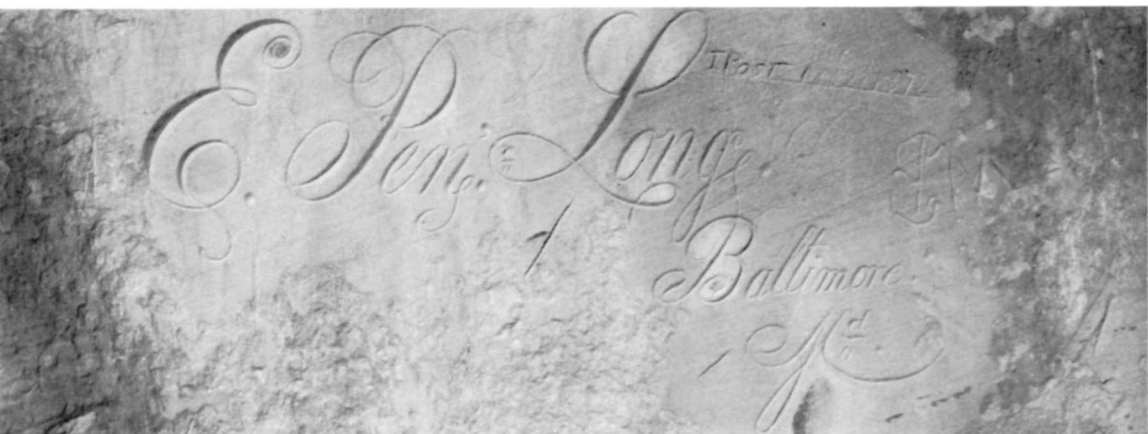 E. Pen. Long.
Baltimore
Md.